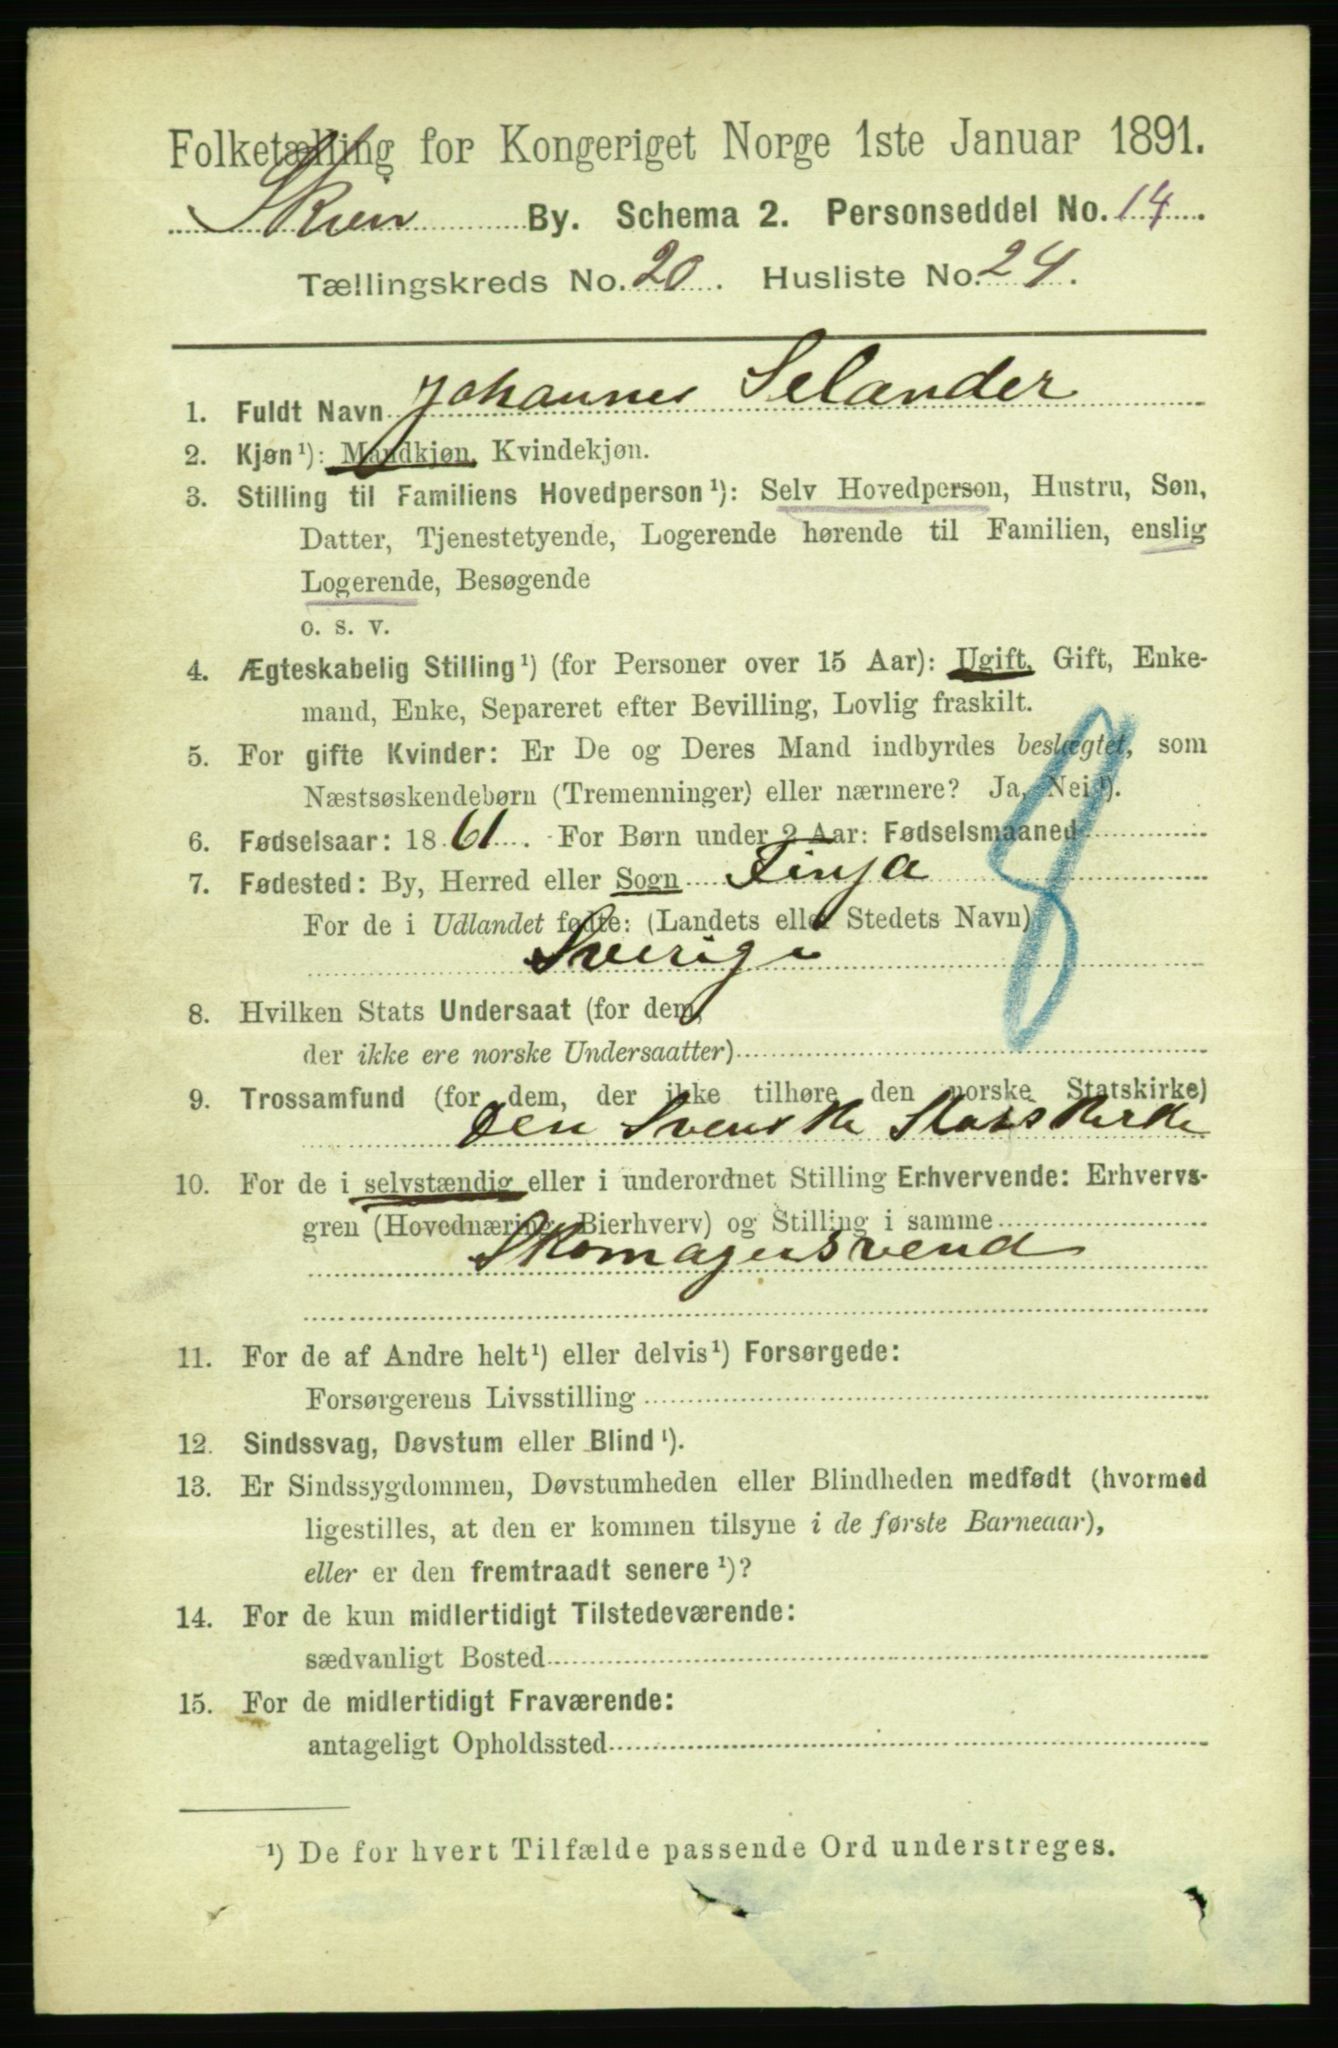 Folketælling for Kongeriget Norge 1ste Januar 1891.
Skien By. Schema 2. Personseddel No. 14.
Tællingskreds No. 20. Husliste No. 24.
1. Fuldt Navn Johannes Selander
2. Kjøn¹): Mandkjøn, Kvindekjøn.
3. Stilling til Familiens Hovedperson¹): Selv Hovedperson, Hustru, Søn,
Datter, Tjenestetyende, Logerende hørende til Familien, enslig
Logerende, Besøgende
o. s. v.
4. Ægteskabelig Stilling¹) (for Personer over 15 Aar): Ugift, Gift, Enke-
mand, Enke, Separeret efter Bevilling, Lovlig fraskilt.
5. For gifte Kvinder: Er De og Deres Mand indbyrdes beslægtet, som
Næstsøskendebørn (Tremenninger) eller nærmere? Ja, Nei¹).
6. Fødselsaar: 1861. For Børn under 2 Aar: Fødselsmaaned
7. Fødested: By, Herred eller Sogn Finja
For de i Udlandet fødte: (Landets eller Stedets Navn)
Sverige
8. Hvilken Stats Undersaat (for dem,
der ikke ere norske Undersaatter)
9. Trossamfund (for dem, der ikke tilhøre den norske Statskirke)
Den Svenske Statskirke
10. For de i selvstændig eller i underordnet Stilling Erhvervende: Erhvervs-
gren (Hovednæring, Bierhverv) og Stilling i samme
Skomagersvend
11. For de af Andre helt¹) eller delvis¹) Forsørgede:
Forsørgerens Livsstilling
12. Sindssvag, Døvstum eller Blind¹).
13. Er Sindssygdommen, Døvstumheden eller Blindheden medfødt (hvormed
ligestilles, at den er kommen tilsyne i de første Barneaar),
eller er den fremtraadt senere¹)?
14. For de kun midlertidigt Tilstedeværende:
sædvanligt Bosted
15. For de midlertidigt Fraværende:
antageligt Opholdssted
¹) De for hvert Tilfælde passende Ord understreges.